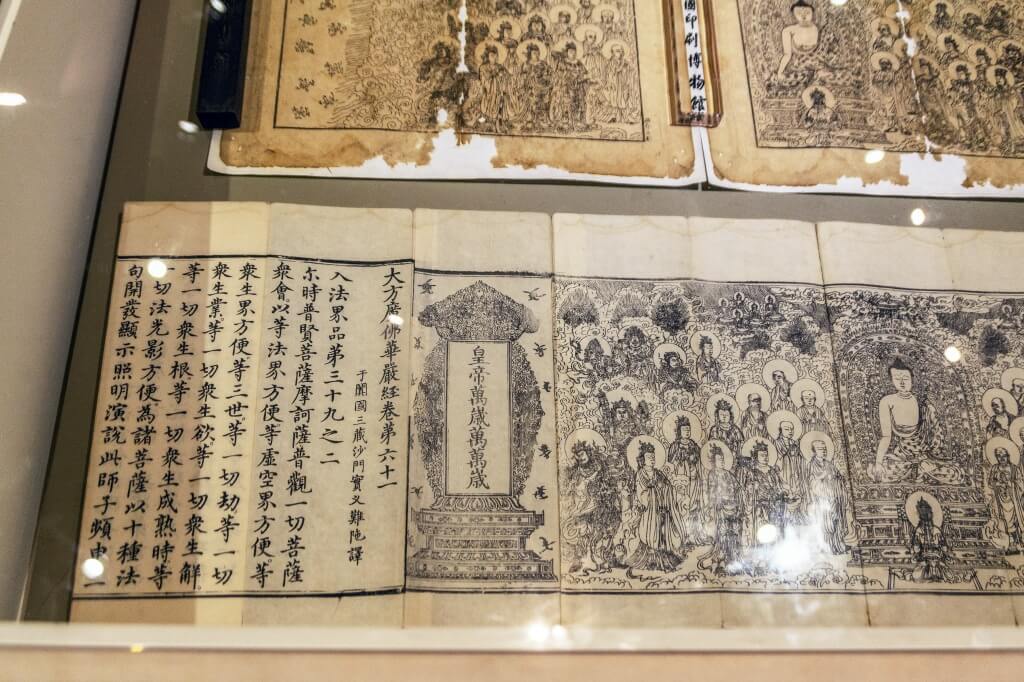 國印刷博物館
皇帝萬歲萬萬歲
大方廣佛華嚴經卷第六十一
于闐國三藏沙門實叉難陁譯
入法界品第三十九之二
尒時普賢菩薩摩訶薩普觀一切菩薩
衆會以等法界方便等虛空界方便等
衆生界方便等三世等一切劫等一切
衆生業等一切衆生欲等一切衆生解
等一切衆生根等一切衆生成熟時等
一切法光影方便為諸菩薩以十種法
句開發顯示照明演說此師子頻申三